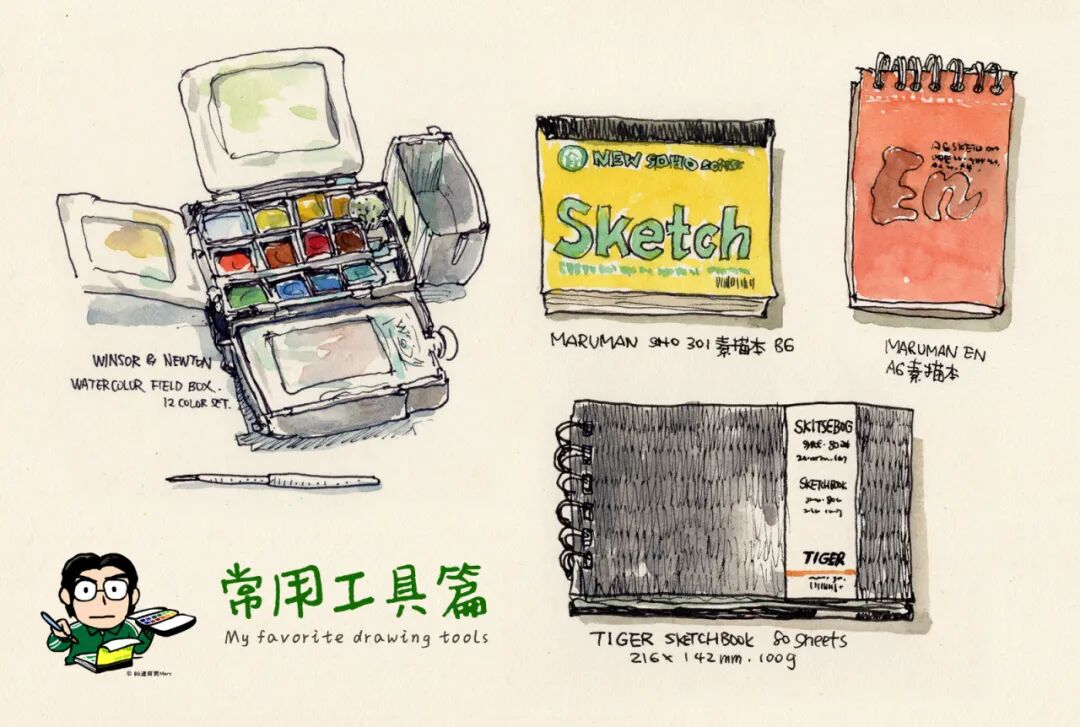 WINSOR & NEWTON
WATERCOLOR FIELD BOX.
12 COLOR SET.
NEW SOHO
Sketch
MARUMAN SHO 301 素描本 B6
En
MARUMAN EN
A6 素描本
SKITSEBOG
SKETCHBOOK
TIGER
TIGER SKETCHBOOK 80 sheets
216 x 142mm. 100g
常用工具篇
My favorite drawing tools